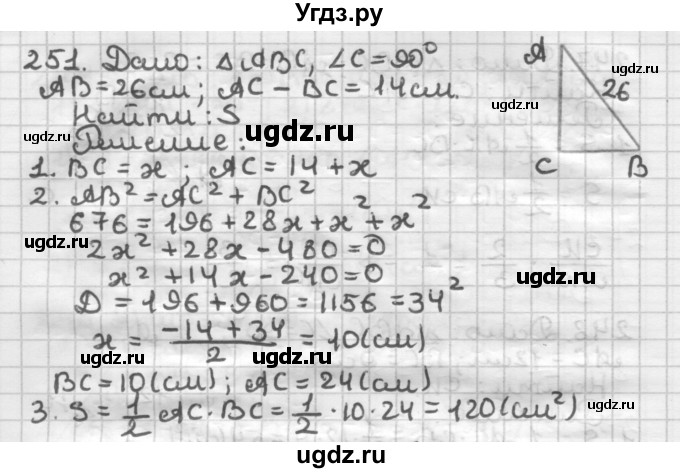 Угдз.ру
251. Дано: △ABC, ∠C=90°
AB=26см; AC − BC = 14см.
Найти: S
Решение:
1. BC = x; AC = 14 + x
2. AB² = AC² + BC²
676 = 196 + 28x + x² + x²
2x² + 28x − 480 = 0
x² + 14x − 240 = 0
D = 196 + 960 = 1156 = 34²
x = (−14 + 34)/2 = 10(см)
BC = 10(см); AC = 24(см)
3. S = 1/2 AC · BC = 1/2 · 10 · 24 = 120(см²)
A
26
C B
ugdz.ru
ugdz.ru
ugdz.ru
ugdz.ru
ugdz.ru
ugdz.ru
ugdz.ru
ugdz.ru
ugdz.ru
ugdz.ru
ugdz.ru
ugdz.ru
ugdz.ru